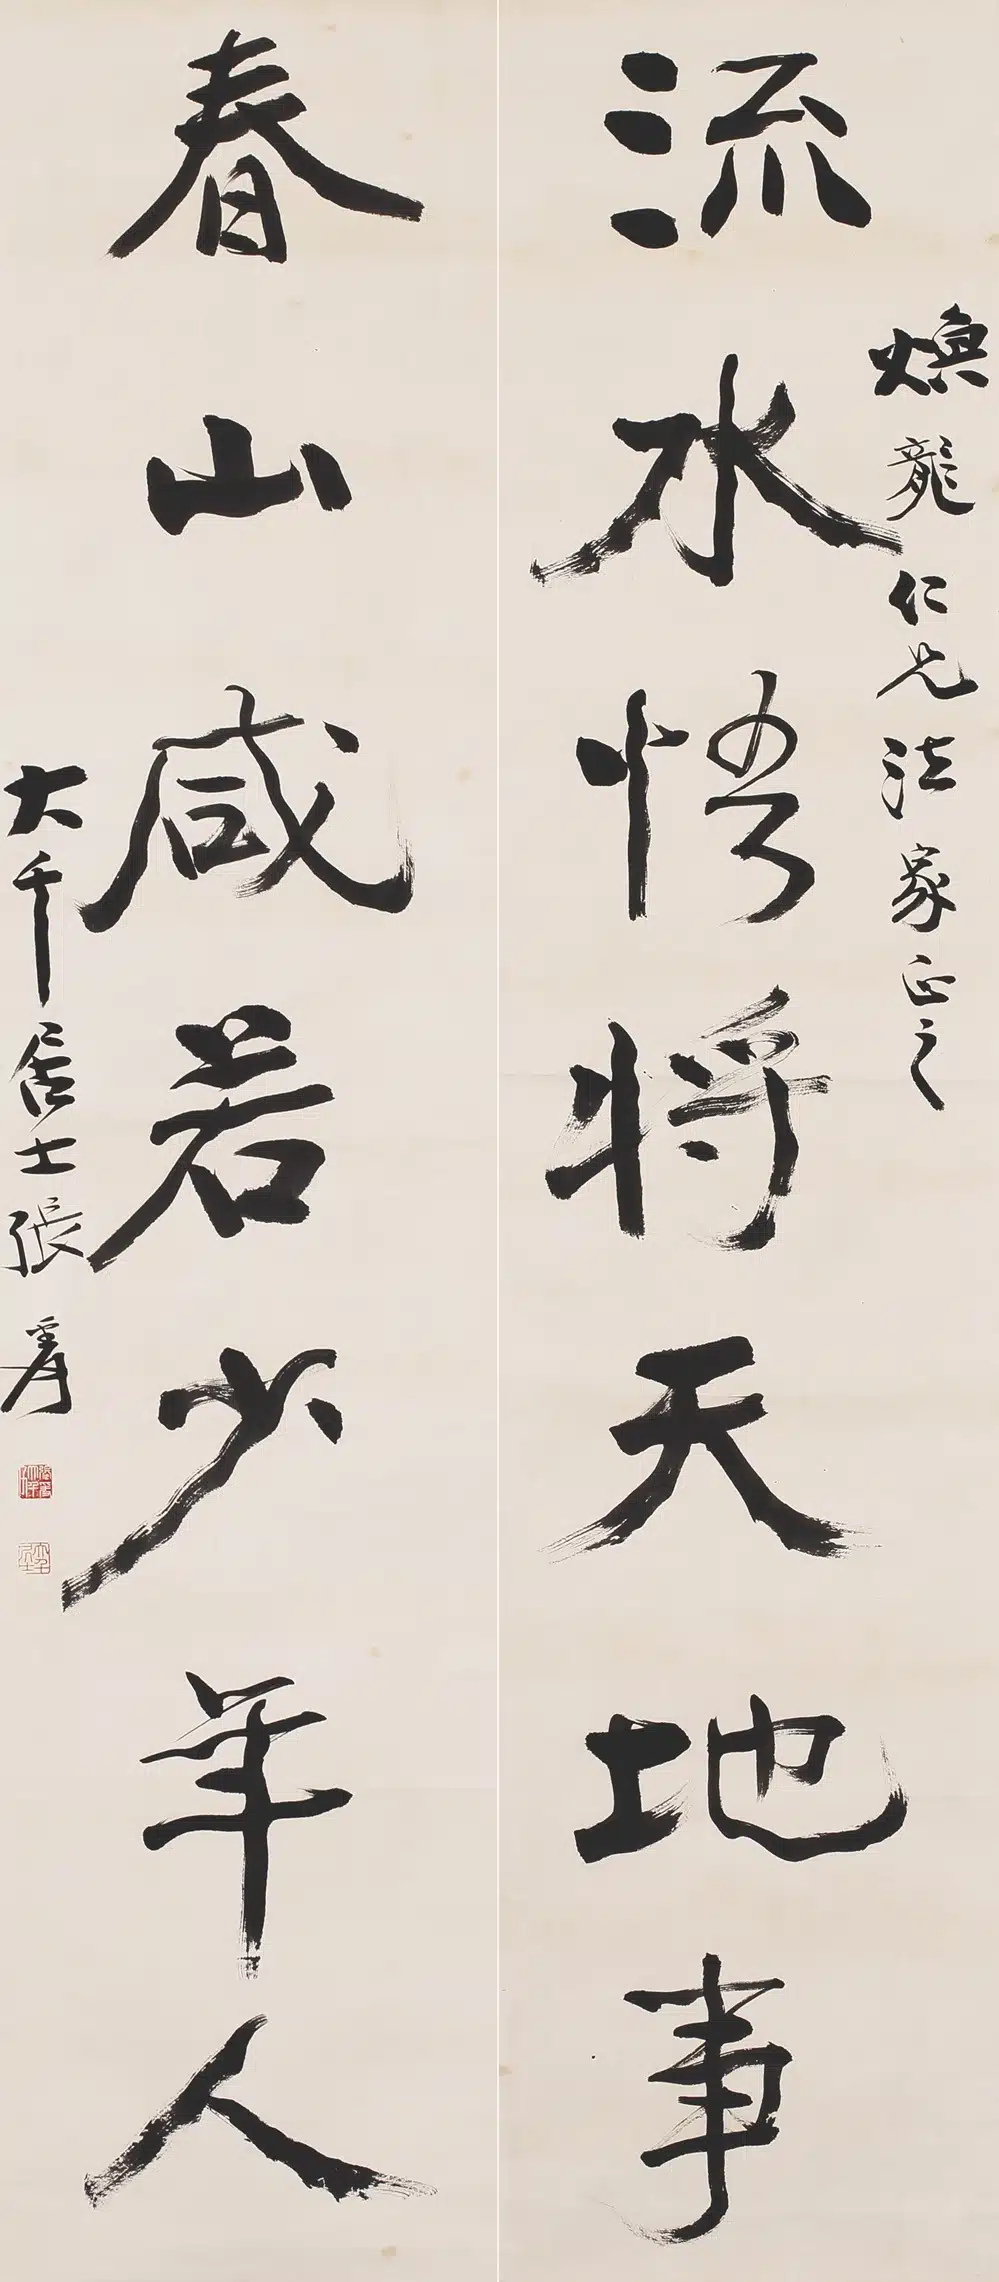 流水悟将天地事
煥龍仁兄法家正之
春山咸若少年人
大千居士張爰